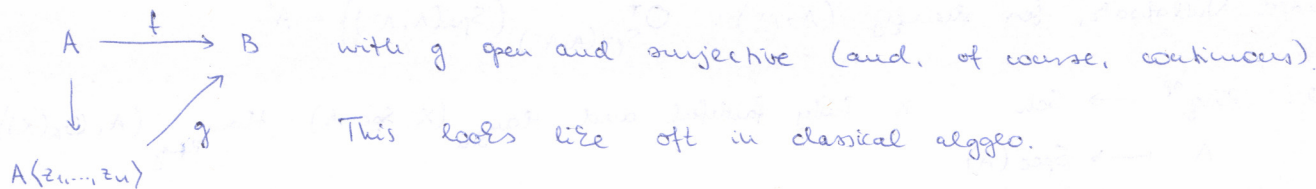 A —f→ B with g open and surjective (and, of course, continuous).
↓ ↗ g This looks like oft in classical alggeo.
A⟨z₁,...,zₙ⟩